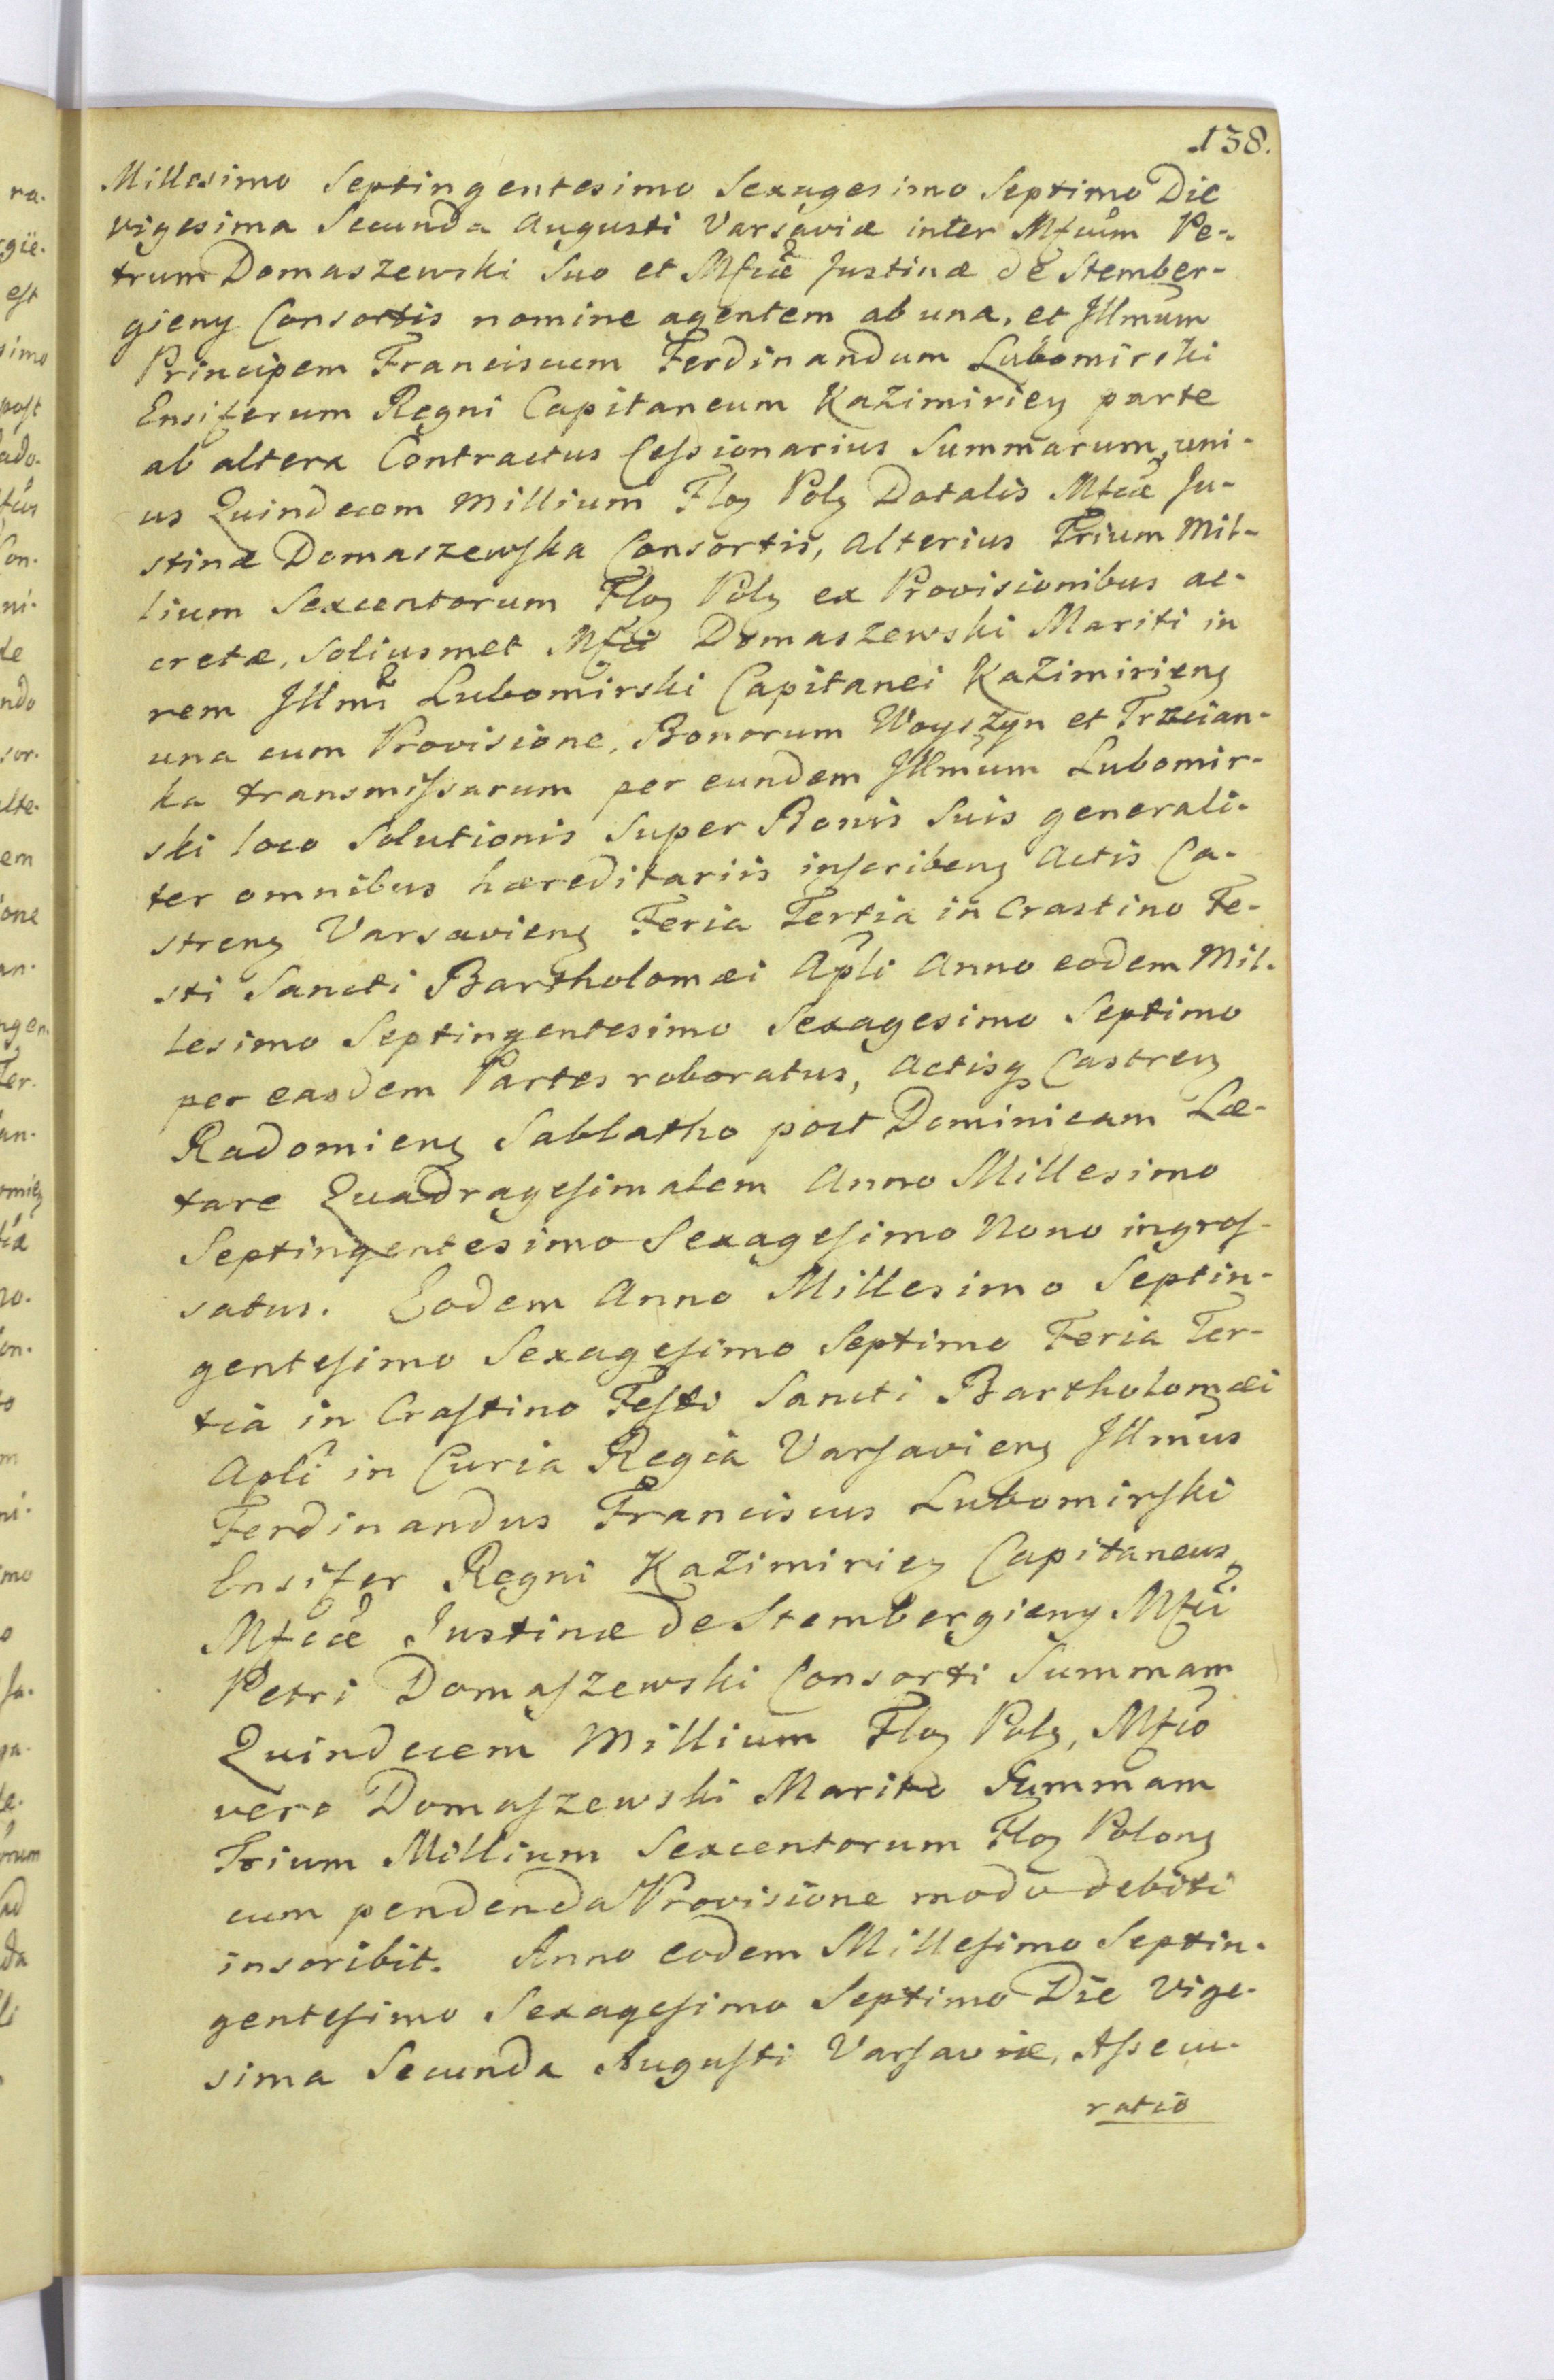 138.
Millesimo Septingentesimo Sexagesimo Septimo Die
vigesima Secunda Augusti Varsaviæ inter Mfcum Pe-
trum Domaszewski Suo et Mfcæ Justinæ de Stember-
gieny Consortis nomine agentem ab una, et Jllmum
Principem Franciscum Ferdinandum Lubomirski
Ensiferum Regni Capitaneum Kazimirień parte
ab altera Contractus Cessionarius Summarum, uni-
us Quindecem Millium Floȝ Polȝ Dotalis Mfcæ Ju-
stinæ Domaszewska Consortis, alterius Trium Mil-
lium Sexcentorum Floȝ Polȝ ex Provisionibus ac-
cretæ, Soliusmet Mfci Domaszewski Mariti in
rem Jllmi Lubomirski Capitanei Kazimirienȝ
una cum Provisione, Bonorum Woyszyn et Trzcian-
ka transmissarum per eundem Jllmum Lubomir-
ski loco Solutionis Super Bonis Suis generali-
ter omnibus hæreditariis inscribenȝ Actis Ca-
strenȝ Varsavienȝ Feria Tertia in Crastino Fe-
sti Sancti Bartholomæi Apli Anno eodem Mil-
lesimo Septingentesimo Sexagesimo Septimo
per easdem Partes roboratus, Actisqȝ Castrenȝ
Radomienȝ Sabbatho post Dominicam Læ-
tare Quadragesimalem Anno Millesimo
Septingentesimo Sexagesimo Nono ingros-
satus. Eodem Anno Millesimo Septin-
gentesimo Sexagesimo Septimo Feria Ter-
tia in Crastino Festi Sancti Bartholomæi
Apli in Curia Regia Varsavienȝ Jllmus
Ferdinandus Franciscus Lubomirski
Ensifer Regni Kazimirieȝ Capitaneus,
Mfcæ Justinæ de Stembergieny Mfci
Petri Domaszewski Consorti Summam
Quindecem Millium Floȝ Polȝ, Mfco
vero Domaszewski Marito Summam
Trium Millium Sexcentorum Floȝ Polonȝ
cum pendenda Provisione modo debiti
inscribit. Anno eodem Millesimo Septin-
gentesimo Sexagesimo Septimo Die vige-
sima Secunda Augusti Varsaviæ, Assecu-
ratio